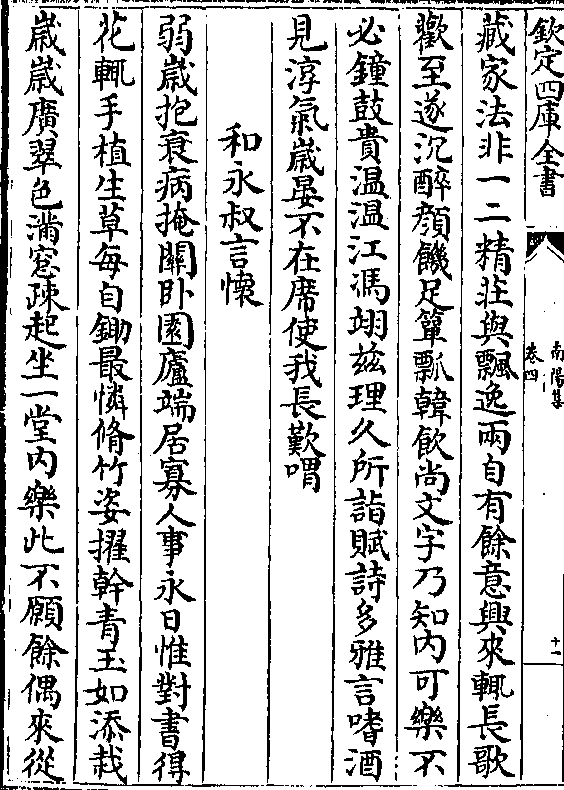 欽定四庫全書
南陽集
卷四
十一
藏家法非一二精莊與飄逸兩自有餘意興來輒長歌
歡至遂沉醉顔饑足簞瓢韓飲尚文字乃知内可樂不
必鐘鼓貴温温江馮翊兹理久所詣賦詩多雅言嗜酒
見淳氣歳晏不在席使我長歎喟
和永叔言懷
弱歳抱衰病掩關卧園廬端居寡人事永日惟對書得
花輒手植生草每自鋤最憐脩竹姿擢幹青玉如添栽
歳歳廣翠色滿窓疎起坐一堂内樂此不願餘偶來從